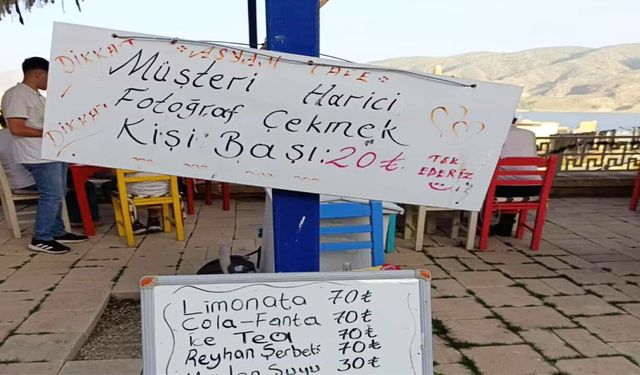 DİKKAT
AŞYAM CAFE
Müşteri Harici
Fotoğraf Çekmek
DİKKAT
Kişi Başı: 20 ₺
TEŞK EDERİZ
Limonata 70 ₺
Cola-Fanta 70 ₺
ice Tea 70 ₺
Reyhan Şerbeti 70 ₺
Suyu 30 ₺